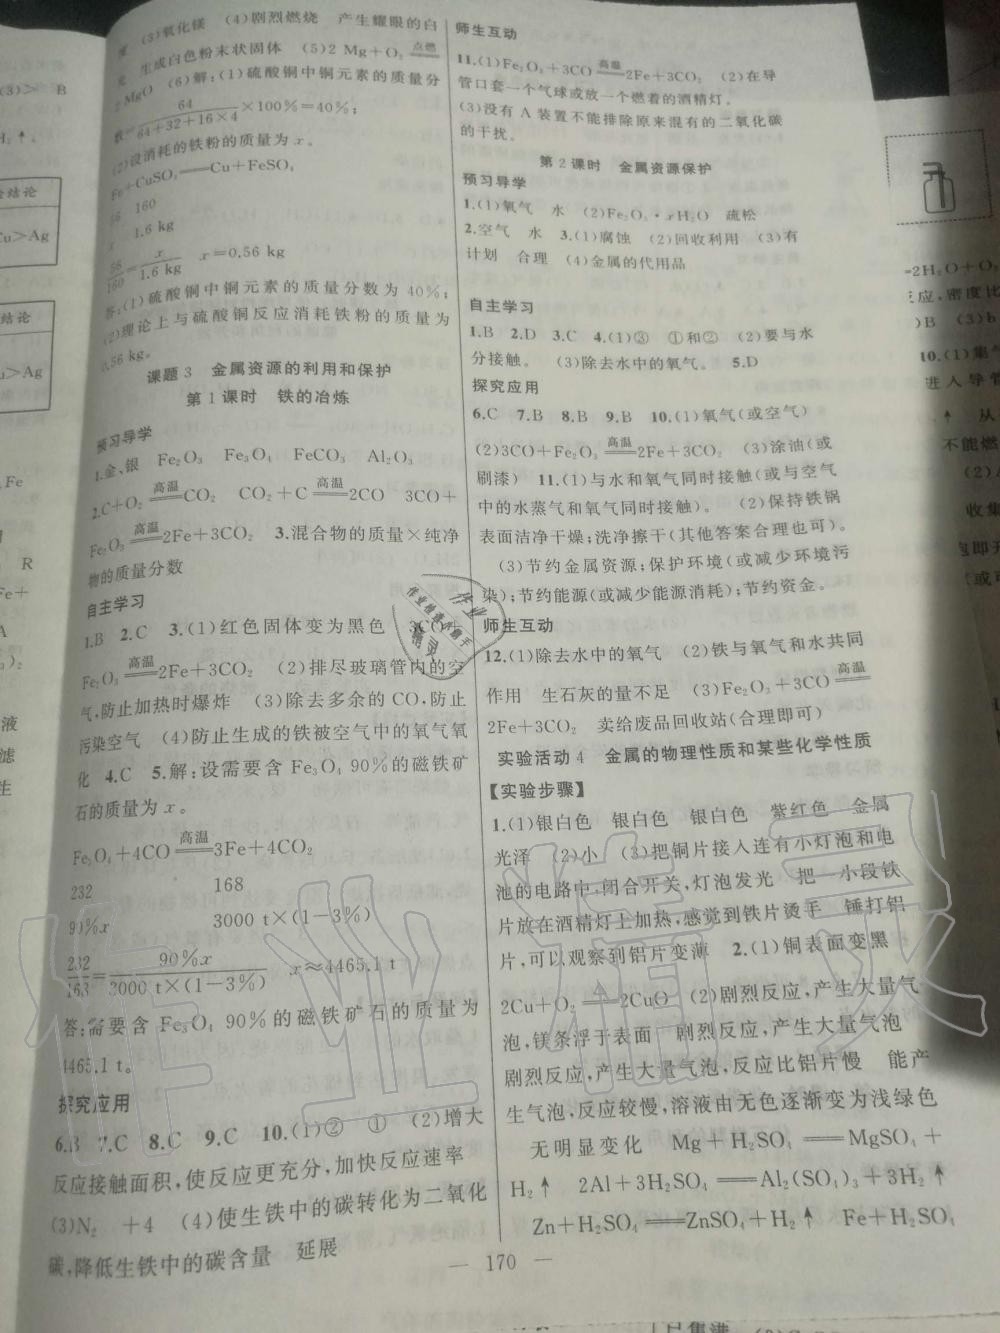 度 (3)氧化镁 (4)剧烈燃烧 产生耀眼的白
光 生成白色粉末状固体 (5)2 Mg+O₂ 点燃
2MgO (6)解:(1)硫酸铜中铜元素的质量分
数=64/(64+32+16×4)×100%=40%;
(2)设消耗的铁粉的质量为 x。
Fe+CuSO₄══Cu+FeSO₄
56 160
x 1.6 kg
56/160=x/1.6 kg x=0.56 kg
答:(1)硫酸铜中铜元素的质量分数为 40%;
(2)理论上与硫酸铜反应消耗铁粉的质量为
0.56 kg。
课题 3 金属资源的利用和保护
第 1 课时 铁的冶炼
预习导学
1.金、银 Fe₂O₃ Fe₃O₄ FeCO₃ Al₂O₃
2.C+O₂ 高温══CO₂ CO₂+C 高温══2CO 3CO+
Fe₂O₃ 高温══2Fe+3CO₂ 3.混合物的质量×纯净
物的质量分数
自主学习
1.B 2.C 3.(1)红色固体变为黑色 3CO+
Fe₂O₃ 高温══2Fe+3CO₂ (2)排尽玻璃管内的空
气,防止加热时爆炸 (3)除去多余的 CO,防止
污染空气 (4)防止生成的铁被空气中的氧气氧
化 4.C 5.解:设需要含 Fe₃O₄ 90%的磁铁矿
石的质量为 x。
Fe₃O₄+4CO 高温══3Fe+4CO₂
232 168
90%x 3000 t×(1-3%)
232/168=90%x/3000 t×(1-3%) x≈4465.1 t
答:需要含 Fe₃O₄ 90%的磁铁矿石的质量为
4465.1 t。
探究应用
6.B 7.C 8.C 9.C 10.(1)② ① (2)增大
反应接触面积,使反应更充分,加快反应速率
(3)N₂ +4 (4)使生铁中的碳转化为二氧化
碳,降低生铁中的碳含量 延展
师生互动
11.(1)Fe₂O₃+3CO 高温══2Fe+3CO₂ (2)在导
管口套一个气球或放一个燃着的酒精灯。
(3)没有 A 装置不能排除原来混有的二氧化碳
的干扰。
第 2 课时 金属资源保护
预习导学
1.(1)氧气 水 (2)Fe₂O₃·xH₂O 疏松
2.空气 水 3.(1)腐蚀 (2)回收利用 (3)有
计划 合理 (4)金属的代用品
自主学习
1.B 2.D 3.C 4.(1)③ ①和② (2)要与水
分接触。 (3)除去水中的氧气。 5.D
探究应用
6.C 7.B 8.B 9.B 10.(1)氧气(或空气)
(2)3CO+Fe₂O₃ 高温══2Fe+3CO₂ (3)涂油(或
刷漆) 11.(1)与水和氧气同时接触(或与空气
中的水蒸气和氧气同时接触)。 (2)保持铁锅
表面洁净干燥;洗净擦干(其他答案合理也可)。
(3)节约金属资源;保护环境(或减少环境污
染);节约能源(或减少能源消耗);节约资金。
师生互动
12.(1)除去水中的氧气 (2)铁与氧气和水共同
作用 生石灰的量不足 (3)Fe₂O₃+3CO 高温══
2Fe+3CO₂ 卖给废品回收站(合理即可)
实验活动 4 金属的物理性质和某些化学性质
【实验步骤】
1.(1)银白色 银白色 银白色 紫红色 金属
光泽 (2)小 (3)把铜片接入连有小灯泡和电
池的电路中,闭合开关,灯泡发光 把一小段铁
片放在酒精灯上加热,感觉到铁片烫手 锤打铝
片,可以观察到铝片变薄 2.(1)铜表面变黑
2Cu+O₂ △══2CuO (2)剧烈反应,产生大量气
泡,镁条浮于表面 剧烈反应,产生大量气泡
剧烈反应,产生大量气泡,反应比铝片慢 能产
生气泡,反应较慢,溶液由无色逐渐变为浅绿色
无明显变化 Mg+H₂SO₄══MgSO₄+
H₂↑ 2Al+3H₂SO₄══Al₂(SO₄)₃+3H₂↑
Zn+H₂SO₄══ZnSO₄+H₂↑ Fe+H₂SO₄
— 170 —
(3)> B
验结论
Cu>Ag
结论
u>Ag
R
Fe+
A
液
滤
生
═2H₂O+O₂
反应,密度比
)B (3)b
10.(1)集气
进入导管
↑ 从
不能燃
收集
作业精灵